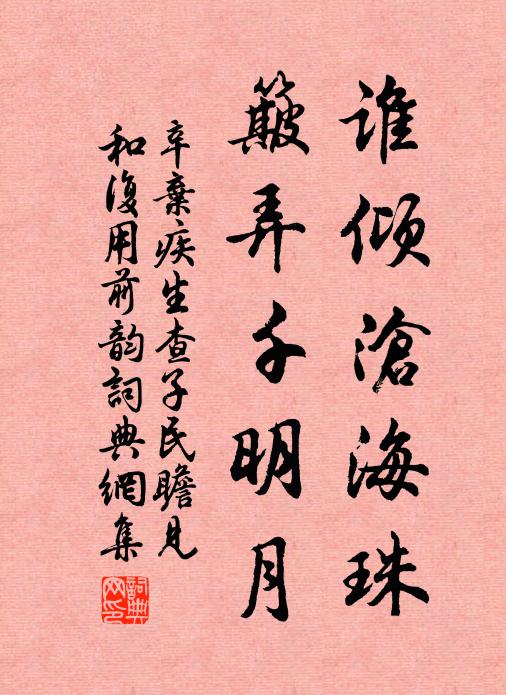 谁倾滄海珠
簸弄千明月
辛棄疾生查子民瞻見
和復用前韵詞典網集
詞典網印